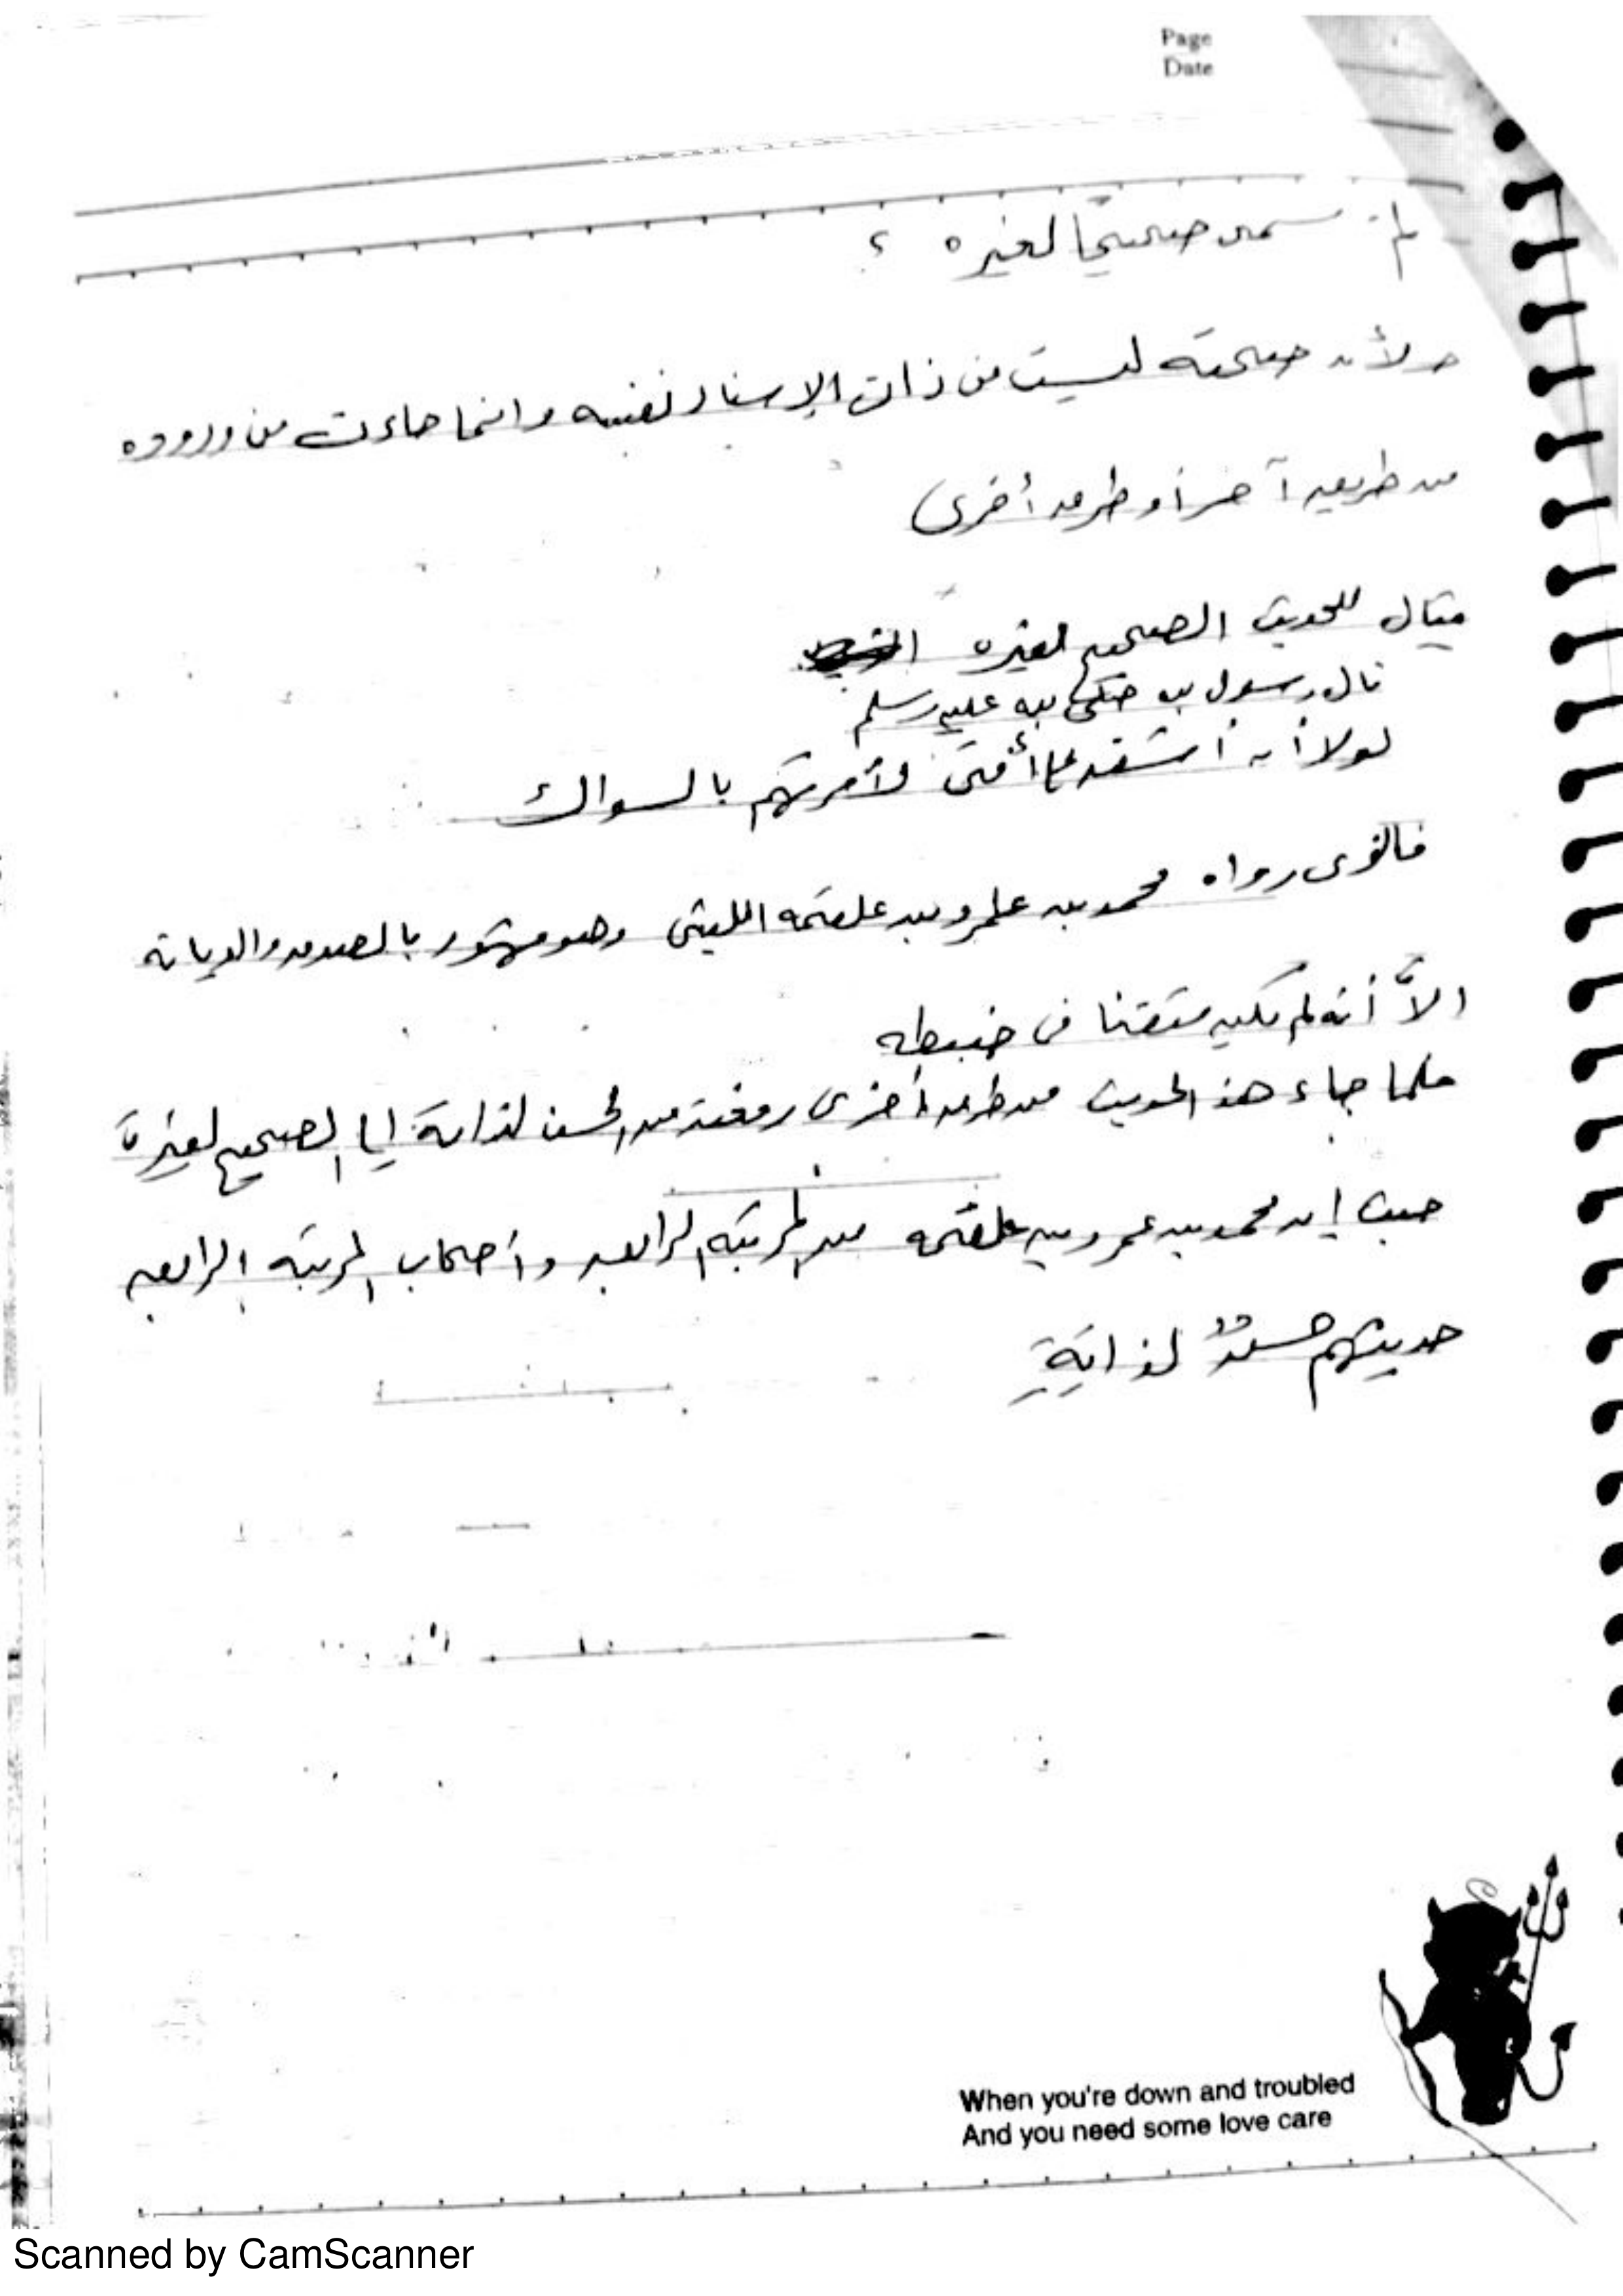 Page
Date
لم سمى صحيحا لغيره ؟
لأن صحته ليست من ذات الإسناد نفسه وانما جاءت من وروده
من طريق آخر أو طرق أخرى
مثال للحديث الصحيح لغيره
قال رسول الله صلى الله عليه وسلم
لولا أن أشق على أمتى لأمرتهم بالسواك
رواه محمد بن عمرو بن علقمه الليثى وهو مشهور بالصدق والديانه
الاَّ أنه لم يكن متقنا فى ضبطه
فلما جاء هذ الحديث من طرق أخرى رفعته من الحسن لذاته إلى الصحيح لغيره
حيث إن محمد بن عمرو بن علقمه من المرتبه الرابعه وأصحاب المرتبه الرابعه
حديثهم حسنٌ لذاتِهِ
When you're down and troubled
And you need some love care
Scanned by CamScanner